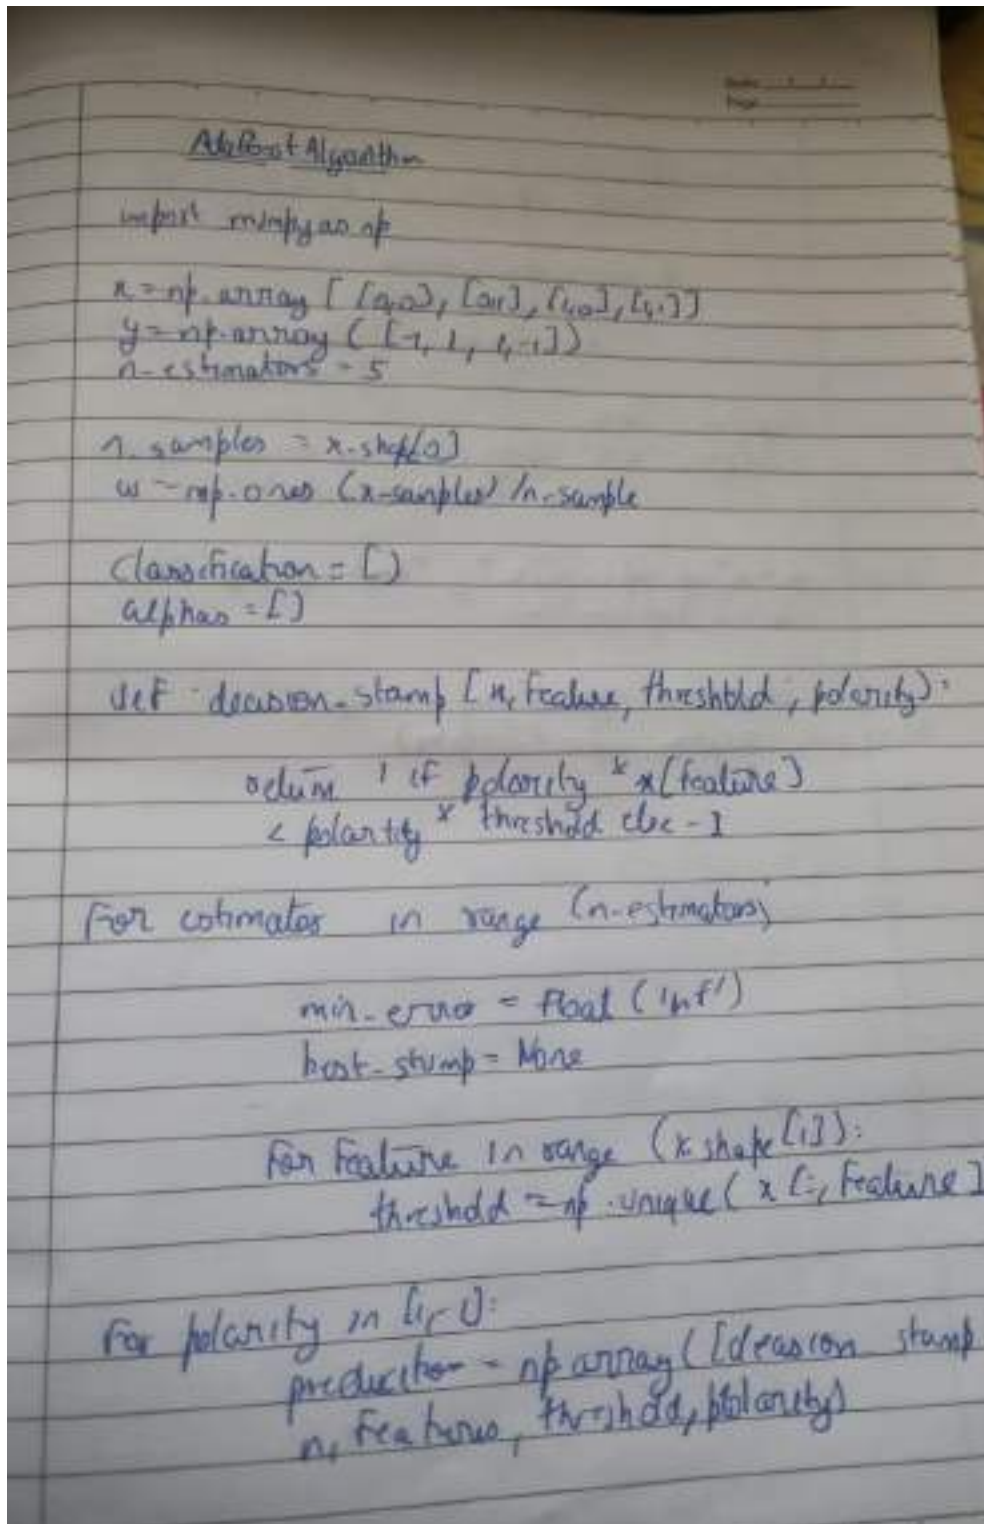 Date
Page
AdaBoost Algorithm
import numpy as np
x = np.array [ [0,0], [0,1], [1,0], [1,1]]
y = np.array ( [-1, 1, 1, -1])
n-estimators = 5
n_samples = x.shape[0]
w = np.ones (x-samples) /n-sample
Classification = [)
alphas = [)
def decision_stamp [x, feature, threshold, polarity):
return 1 if polarity * x[feature]
< polarity * threshold else -1
For estimates in range (n-estimators)
min_error = float ('inf')
best-stump = None
For Feature in range (x shape [1]):
threshold = np.unique( x [:, Feature]
For polarity in [1,-1]:
prediction = np array ([decision stamp
x, Features, threshold, polarity)